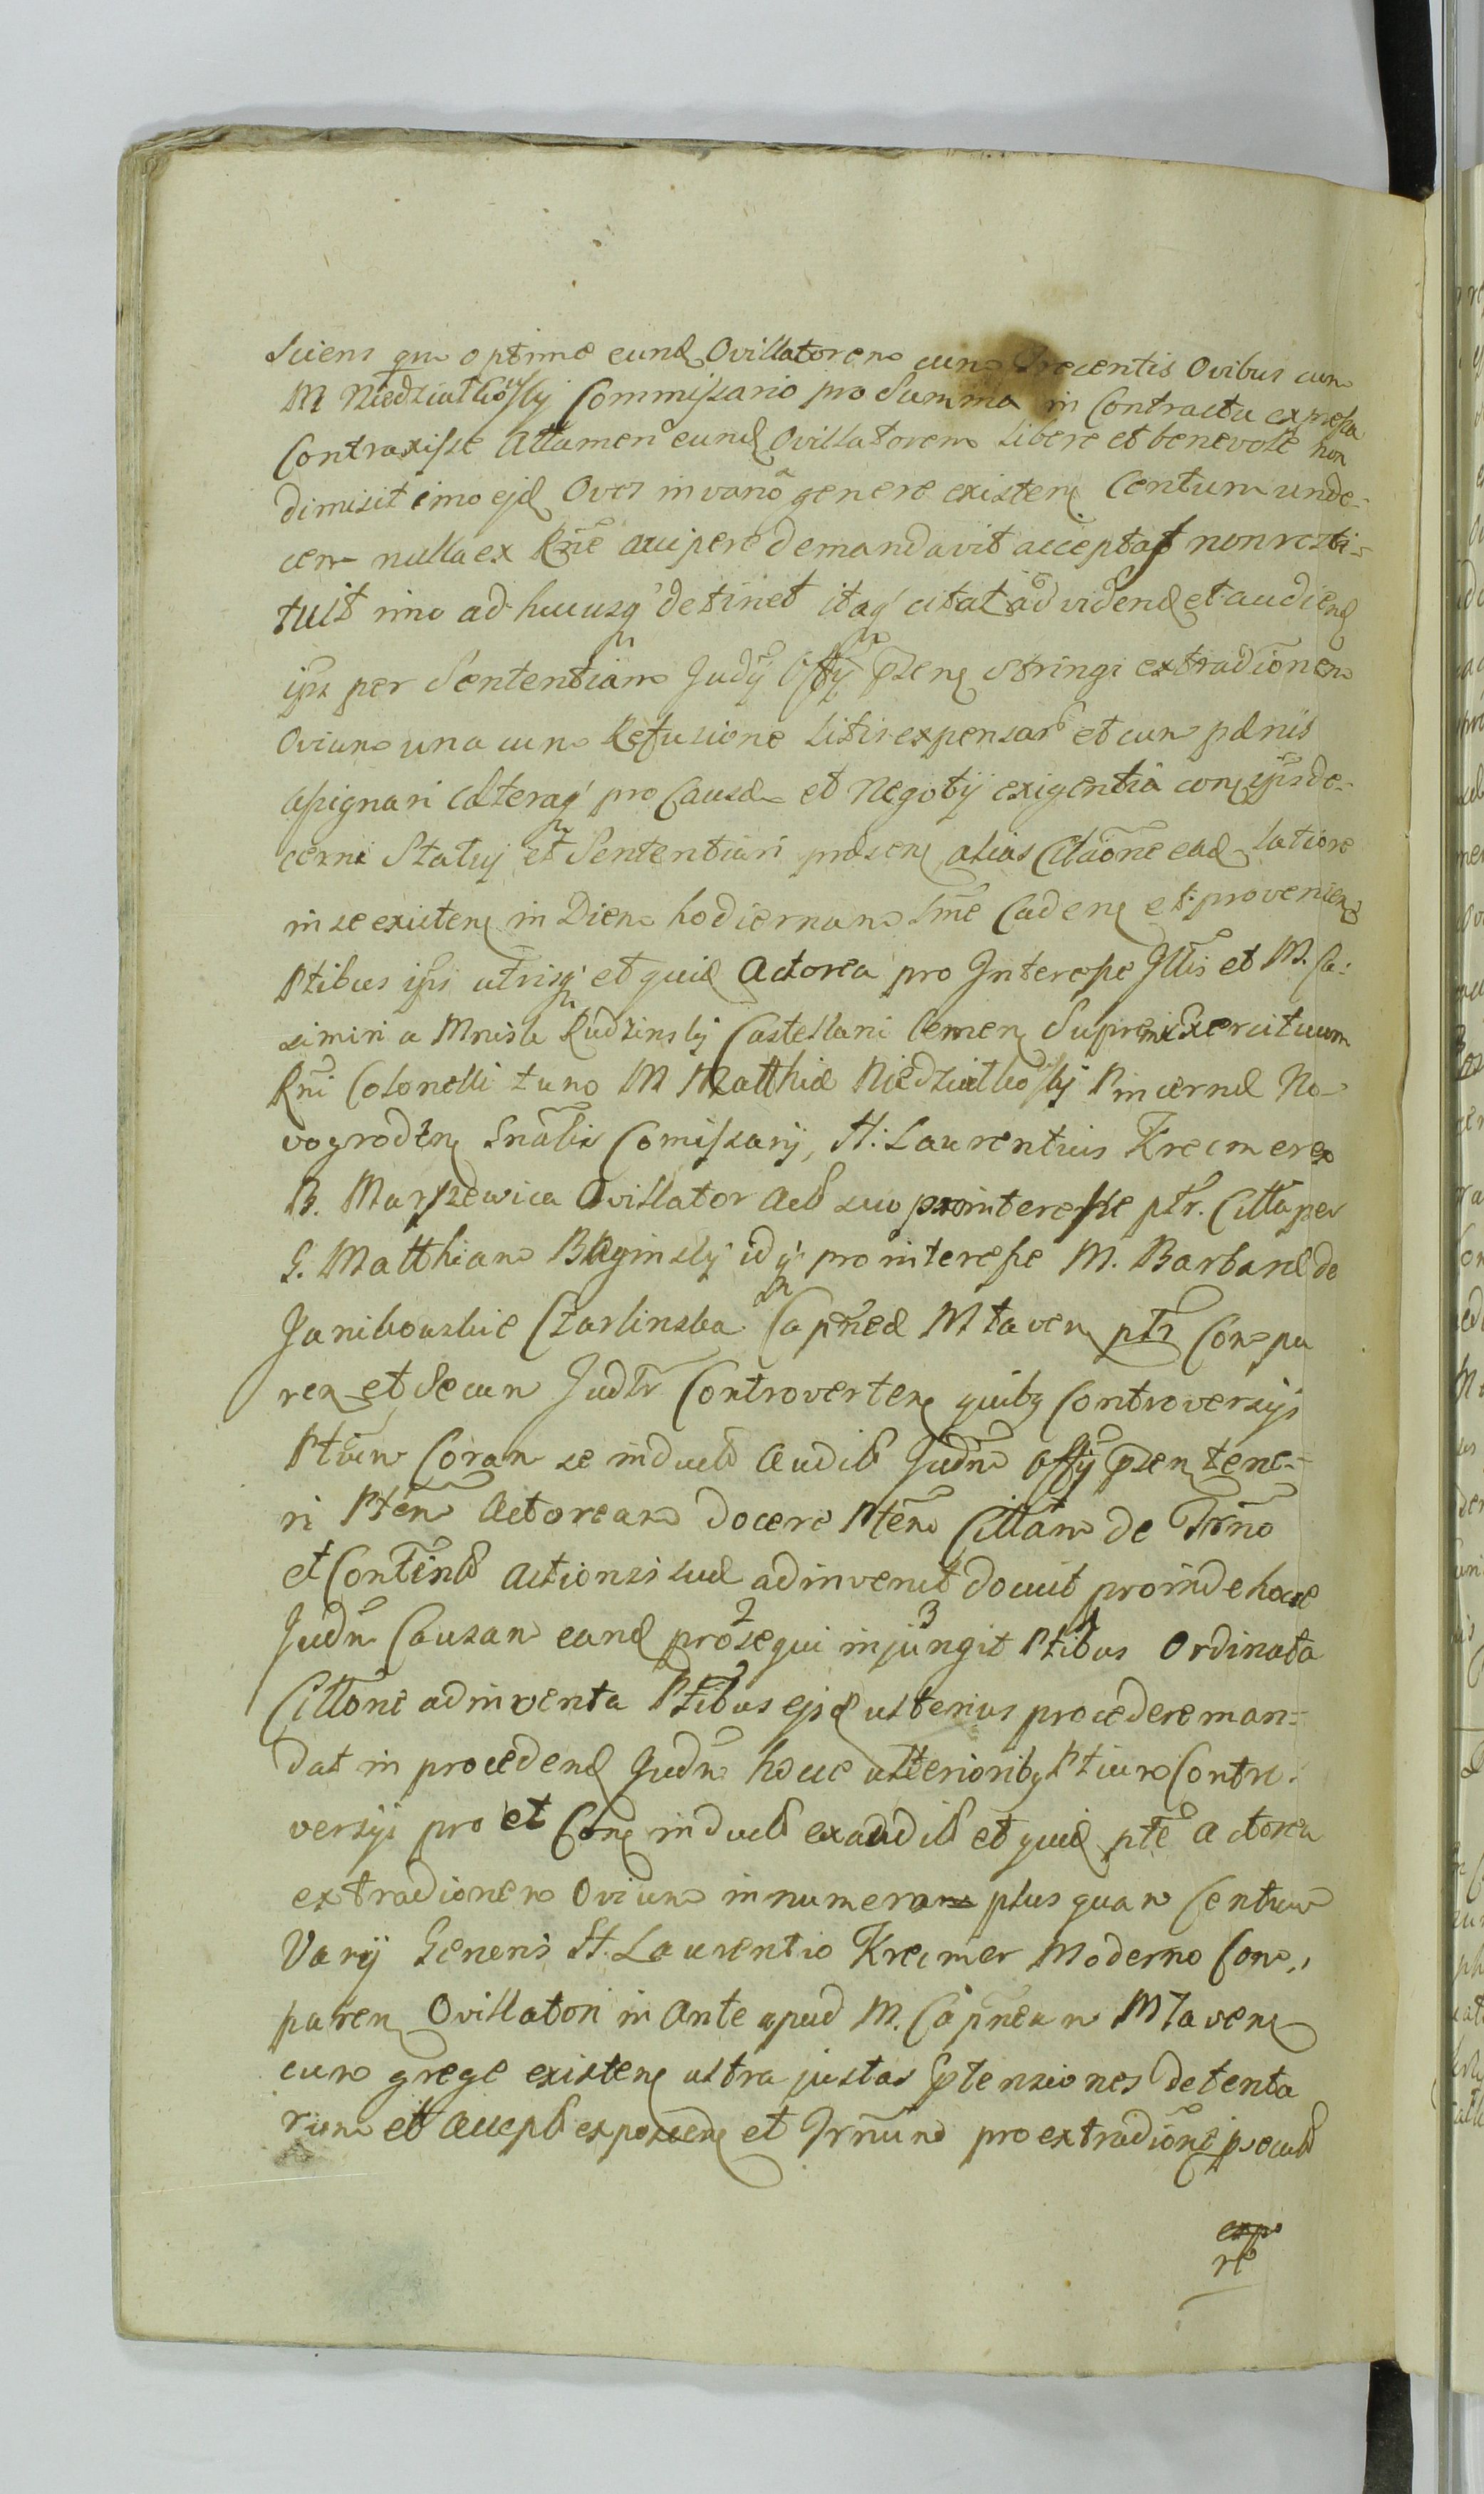 Sciens qm optime eund Ovillatorem cum Trecentis Ovibus cum
M Niedziałkoskij Commissario pro Summa in Contractu expressa
Contraxisse Attamen eund Ovillatorem libere et benevole non
dimisit imo ejd Oves in vario genere existen Centum unde-
cem nulla ex Rne accipere demandavit acceptas non resti-
tuit imo ad hucusq detinet itaq citat ad vidend et audiend
ips per Sententiam Judij Offij psen stringi extradionem
Ovium una cum Refusione litis expensar et cum pænis
assignari cæteraq pro Causæ et Negotij exigentia conseqsijs de-
cerni Statuj et Sententiari præsen alias Citaone ead latiore
in se existen in Diem hodiernam Sme Caden et provenien
Ptibus ipsi utrisq et quid Actorea pro Interesse Illis et M. Ca-
simiri a Mnisk Rudzinskij Castellani Cernen Supremi Exercituum
Rni Colonelli tum M Matthiæ Niedziałkoskij Pincernæ No-
vogroden Gnalis Comissarij, H: Laurentius Krecmerex
B. Marszewica Ovillator Act suo pro interesse ptr. Citta per
G. Matthiam Baginskij idq pro interesse M. Barbaræ de
Janikouskie Czarlinska Capneæ Mlaven ptr Compa
ren et Secum Judtr Controverten quibq Controversijs
Ptium Coram se induct Audit Judm Offij psen tene-
ri Ptem Actoream docere Ptem Cittam de Trno
et Contint Actionis suæ adinvenit docuit proinde hocce
Judm Causam eand prosequi injungit Ptibus Ordinata
Cittone adinventa Ptibus ejsd ulterius procedere man-
dat in procedend Judm hocce ulterioribq Ptium Contro-
versijs pro et Con induct exaudit et quid pte Actorea
extradionem Ovium in numero plus quam Centum
Varij Generis H. Laurentio Krecmer Moderno Com-
paren Ovillatori in Ante apud M. Capneam Mlaven
cum grege existen ultra justas Ptensiones detenta
rum et Accept exposcen et Irnum pro extradione pecud
exp
re